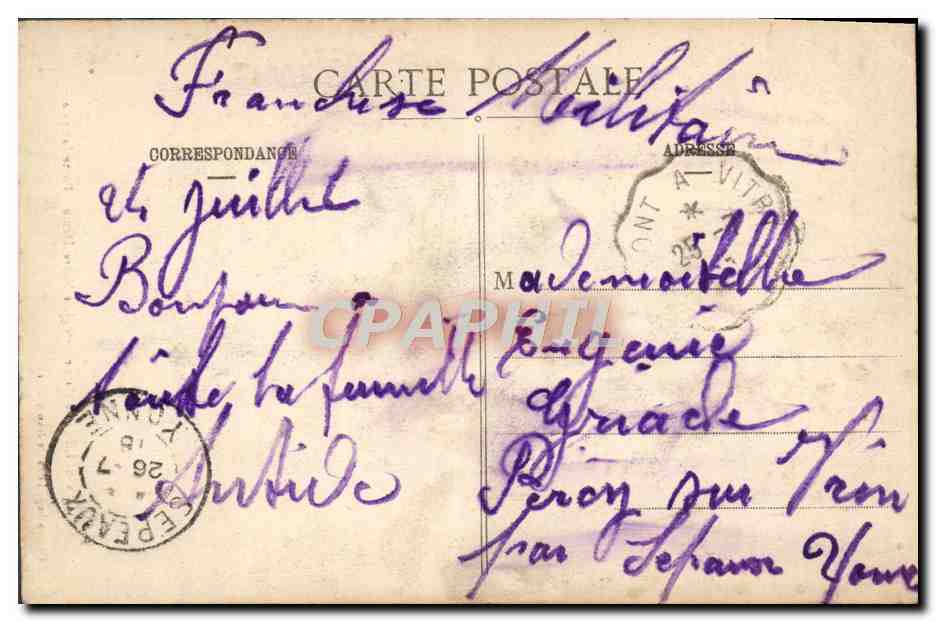 CARTE POSTALE
Franchise Militaire
CORRESPONDANCE
24 juillet
Bonjour a
toute la famille
ADRESSE
Mademoiselle
Eugenie
Perey sur Vrin
par Sepeaux Yonne
ONT A VITR
25-7
SEPEAUX
YONNE
26-7
CPAPHIL